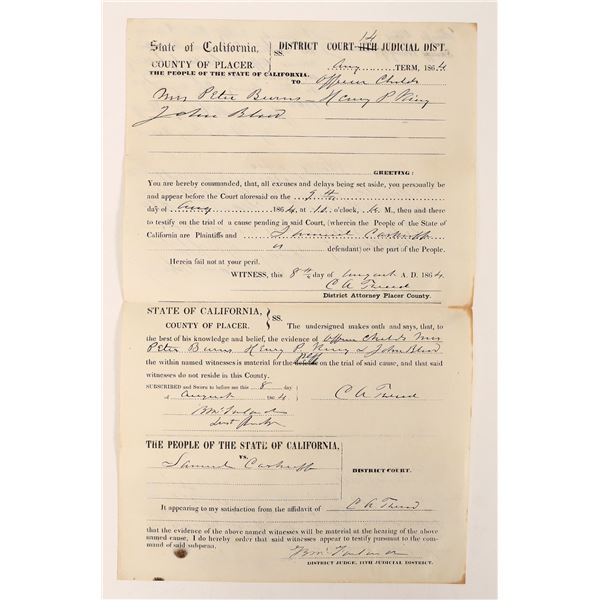 14
State of California, SS. DISTRICT COURT 11TH JUDICIAL DIST.
COUNTY OF PLACER. Aug TERM, 1864
THE PEOPLE OF THE STATE OF CALIFORNIA.
TO Officer Childs
Mrs Peter Burns Henry P King
John Blood
GREETING:
You are hereby commanded, that, all excuses and delays being set aside, you personally be
and appear before the Court aforesaid on the 9th
day of Aug 1864, at 10 o'clock, A. M., then and there
to testify on the trial of a cause pending in said Court, (wherein the People of the State of
California are Plaintiffs and Samuel
defendant) on the part of the People.
Herein fail not at your peril.
WITNESS, this 8th day of August A. D. 1864
C A Tweed
District Attorney Placer County.
STATE OF CALIFORNIA, SS.
COUNTY OF PLACER. The undersigned makes oath and says, that, to
the best of his knowledge and belief, the evidence of Officer Childs Mrs
Peter Burns Henry P. King & John Blood
the within named witnesses is material for the Plff on the trial of said cause, and that said
witnesses do not reside in this County.
SUBSCRIBED and Sworn to before me this 8 day
of August 1864 C A Tweed
Dist Judge
THE PEOPLE OF THE STATE OF CALIFORNIA,
vs. DISTRICT COURT.
Samuel
It appearing to my satisfaction from the affidavit of C A Tweed
that the evidence of the above named witnesses will be material at the hearing of the above
named cause. I do hereby order that said witnesses appear to testify pursuant to the com-
mand of said subpœna.
DISTRICT JUDGE, 11TH JUDICIAL DISTRICT.